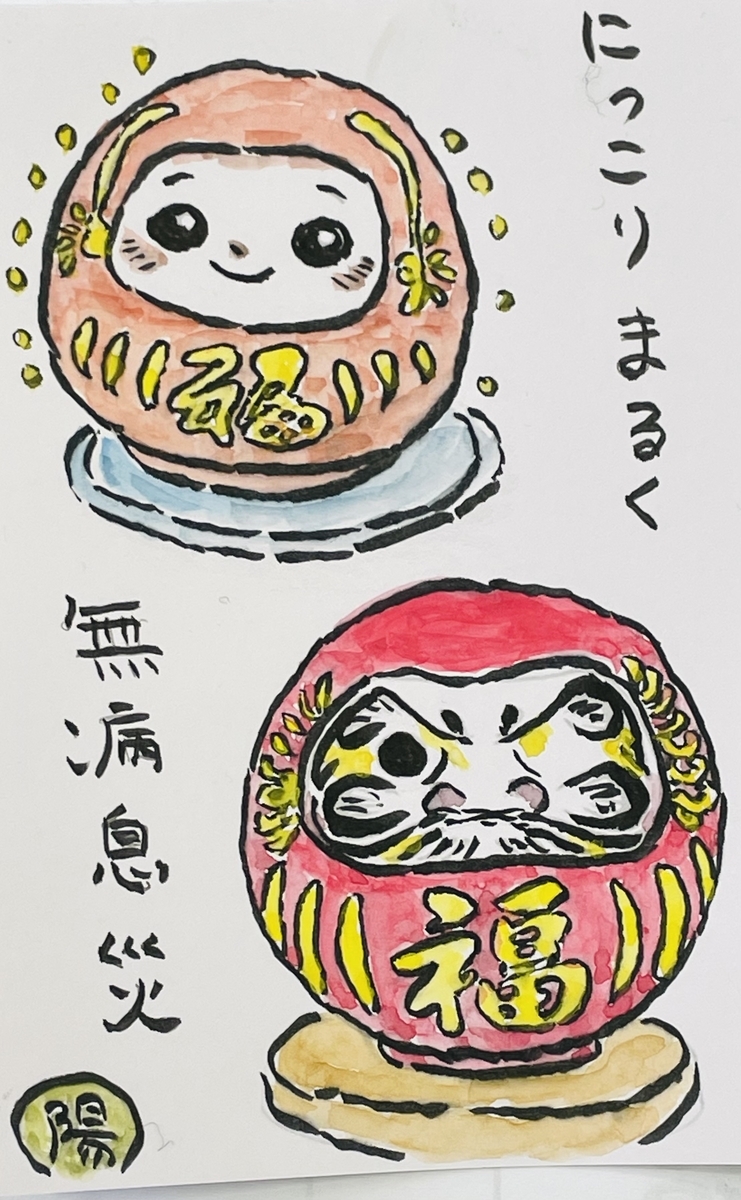 にっこり まるく
福
無病息災
福
陽